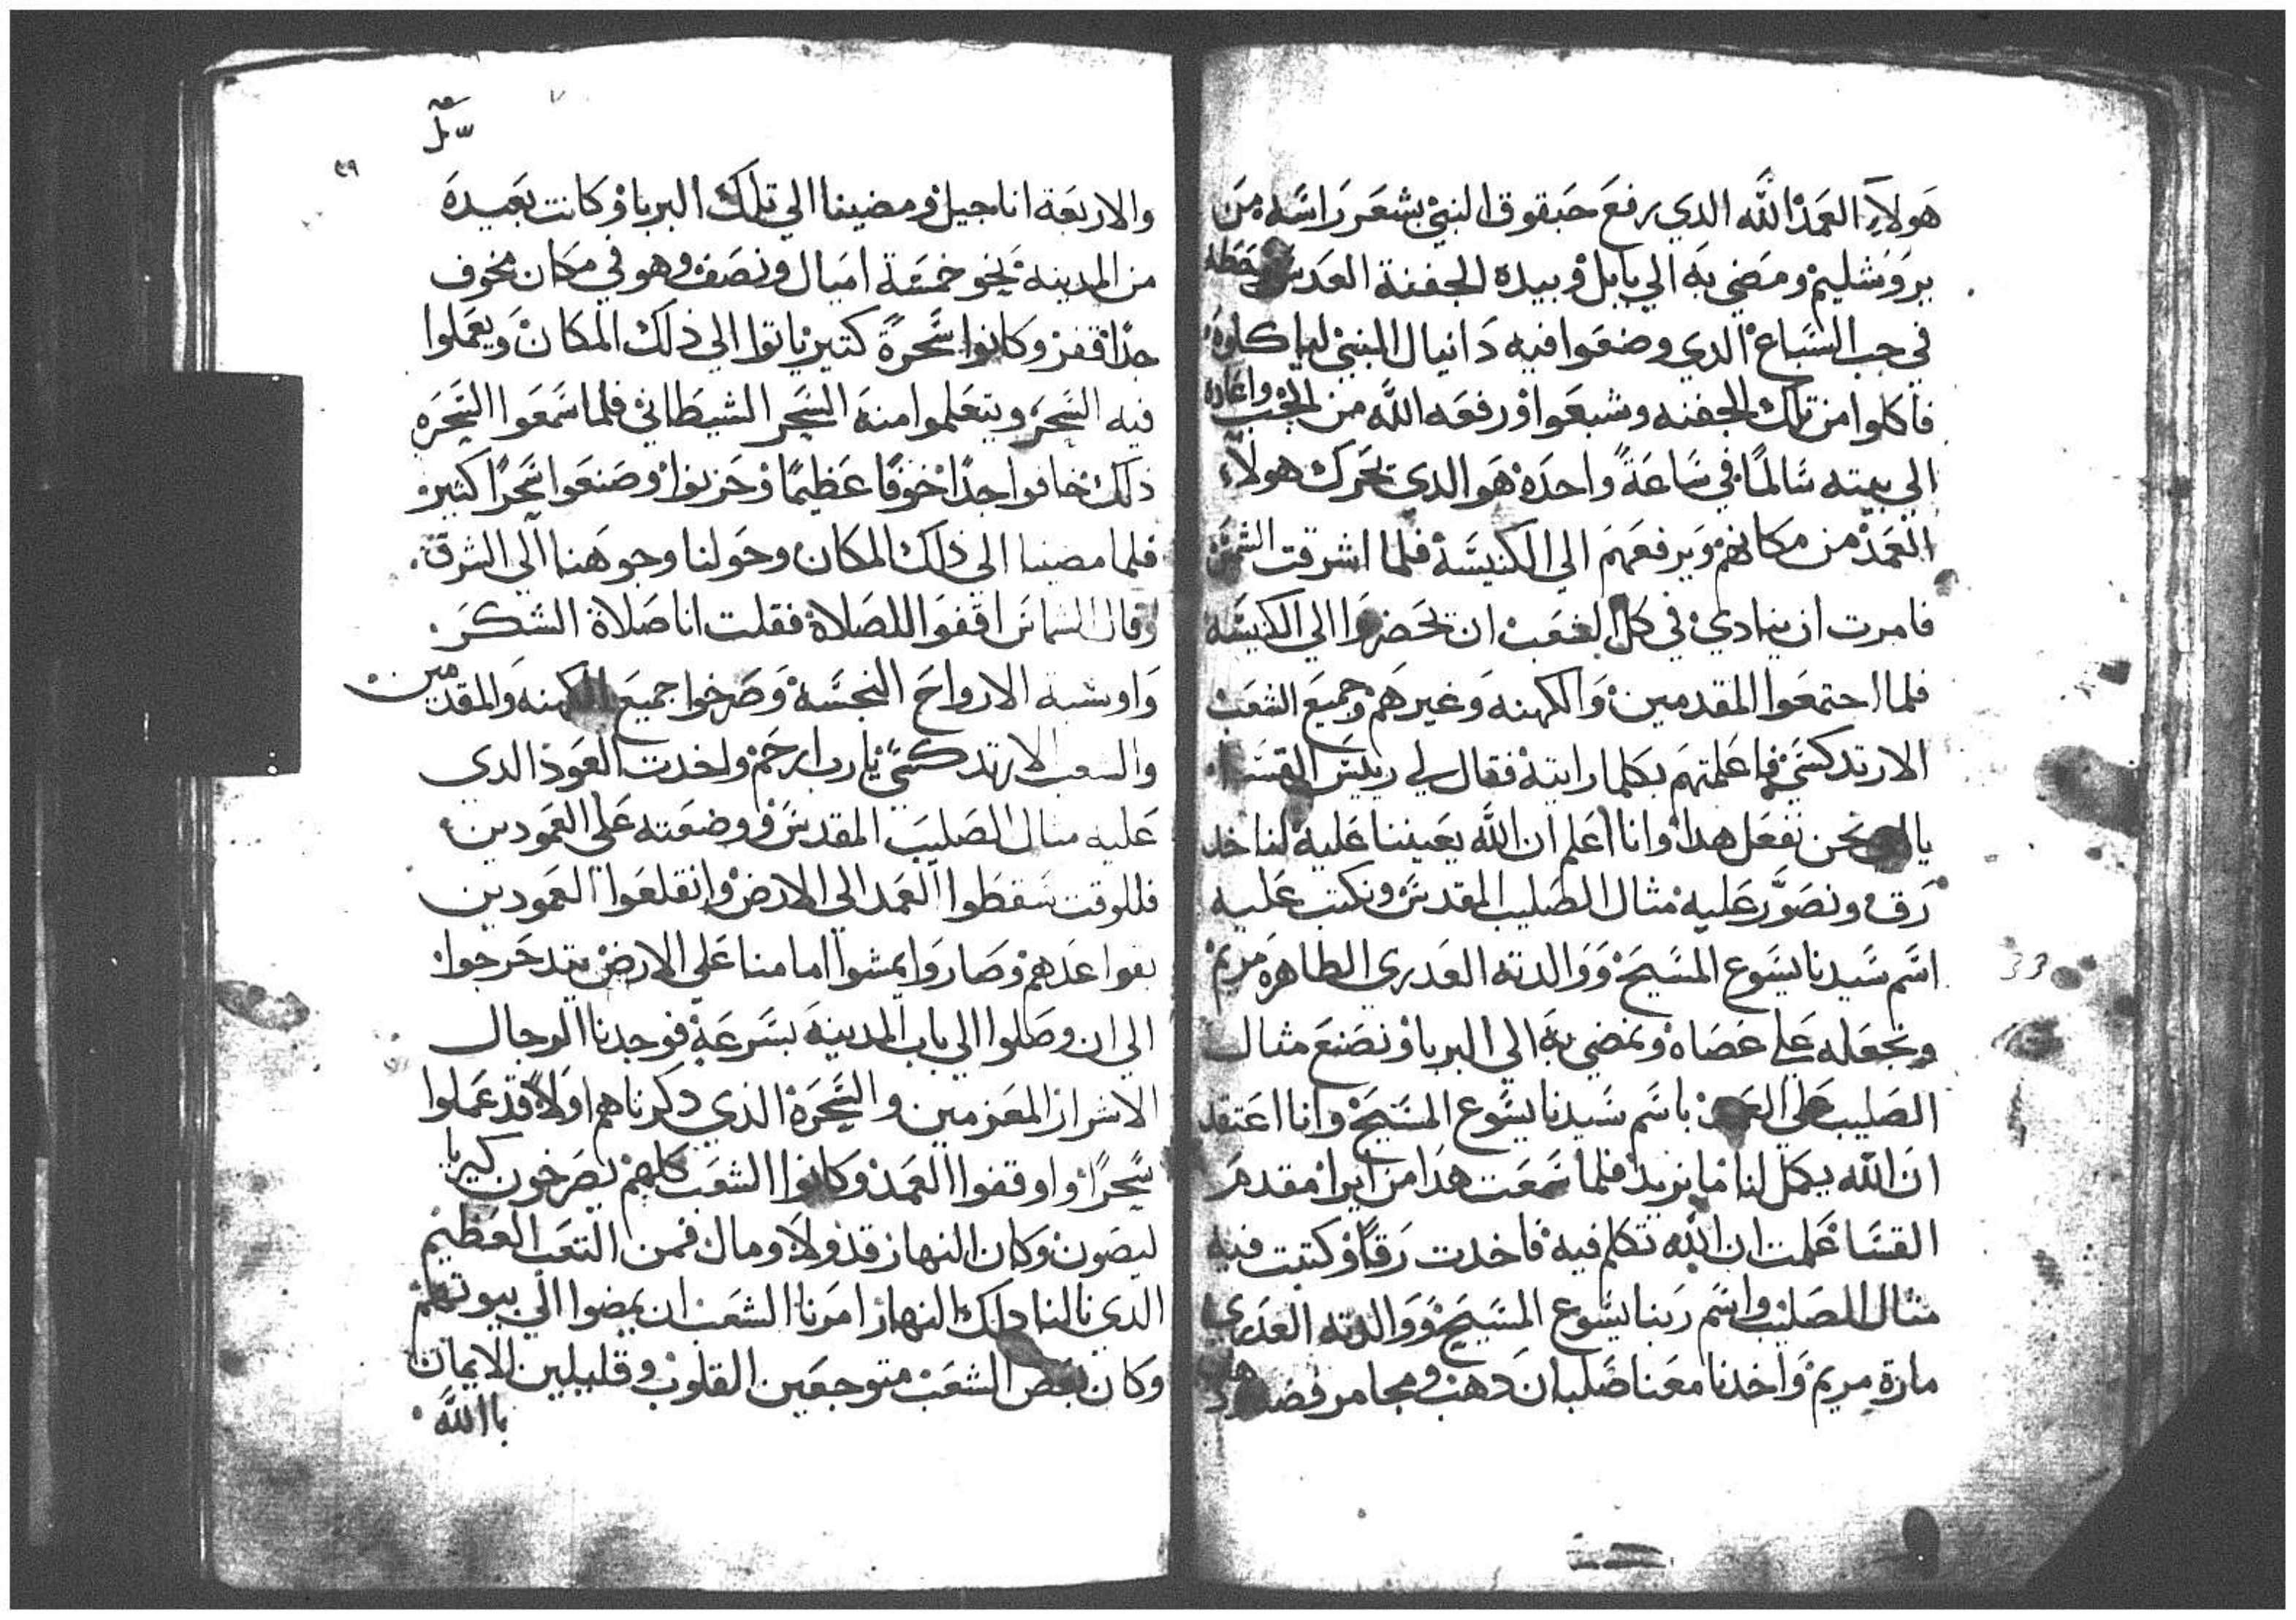 هولاء العمد الله الدي رفع حبقوق النبي بشعر راسه من
يروشليم ومضي به الي بابل وبيده الجفنة العدس وحطه
في جب السباع الدي وضعوا فيه دانيال النبي لياكلوه
فاكلوا من تلك الجفنه وشبعوا ورفعه الله من الجب واعاده
الي بيته سالما في ساعة واحده هو الدي يحرك هولاء
العمد من مكانهم ويرفعهم الي الكنيسه فلما اشرقت الشمس
فامرت ان ينادي في كل الشعب ان يحضروا الي الكنيسه
فلما اجتمعوا المقدمين والكهنه وغيرهم وجميع الشعب
الارتدكسي فاعلمتهم بكلما رايته فقال لي رييس القسا
يا نحن نفعل هدا وانا اعلم ان الله يعيننا عليه لنا خد
رق ونصور عليه مثال الصليب المقدس ونكتب عليه
اسم سيدنا يسوع المسيح ووالدته العدري الطاهره مريم
ونجعله علي عصاه ونمضي به الي البربا ونصنع مثال
الصليب علي العمد باسم سيدنا يسوع المسيح وانا اعتقد
ان الله يكمل لنا ما نريد فلما سمعت هدا من ايرا مقدم
القسا علمت ان الله تكلم فيه فاخدت رقا وكتبت فيه
مثال الصليب واسم ربنا يسوع المسيح ووالدته العدري
مارة مريم واخدنا معنا صلبان دهب ومجامر فضه
سل
٣٩
والاربعة اناجيل ومضينا الي تلك البربا وكانت بعيده
من المدينه نحو خمسة اميال ونصف وهو في مكان مخوف
جدا قفر وكانوا سحرة كتير ياتوا الي ذلك المكان ويعملوا
فيه السحر ويتعلموا منه السحر الشيطاني فلما سمعوا السحره
ذلك خافوا جدا خوفا عظيما وحزنوا وصنعوا سحرا كثير
فلما مضينا الي ذلك المكان وحولنا وجوهنا الي الشرق
وقال الشماس اقفوا للصلاة فقلت انا صلاة الشكر
واوشية الارواح النجسة وصرخوا جميع الكهنه والمقدمين
والشعب الارتدكسي يارب ارحم واخدت العود الدي
عليه مثال الصليب المقدس ووضعته علي العمودين
فللوقت سقطوا العمد الي الارض وانقلعوا العمودين
بقواعدهم وصاروا يمشوا امامنا علي الارض يتدحرجوا
الي ان وصلوا الي باب المدينه بسرعة فوجدنا الرجال
الاشرار المعزمين والسحرة الذي دكرناهم اولا قد عملوا
سحرا واوقفوا العمد وكانوا الشعب كلهم يصرخون كيريا
ليصون وكان النهار قد ولا ومال فمن التعب العظيم
الدي نالنا دلك النهار امرنا الشعب ان يمضوا الي بيوتهم
وكان بعض الشعب متوجعين القلوب وقليلين الايمان
باالله
33